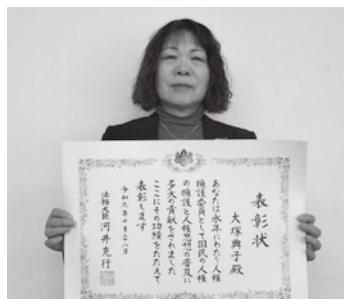 表彰状
大塚典子殿
あなたは永年にわたり人権
擁護委員として国民の人権
の擁護と人権思想の普及に
多大の貢献をされました
ここにその功績をたたえて
表彰します
令和元年十月二八日
法務大臣 河井克行